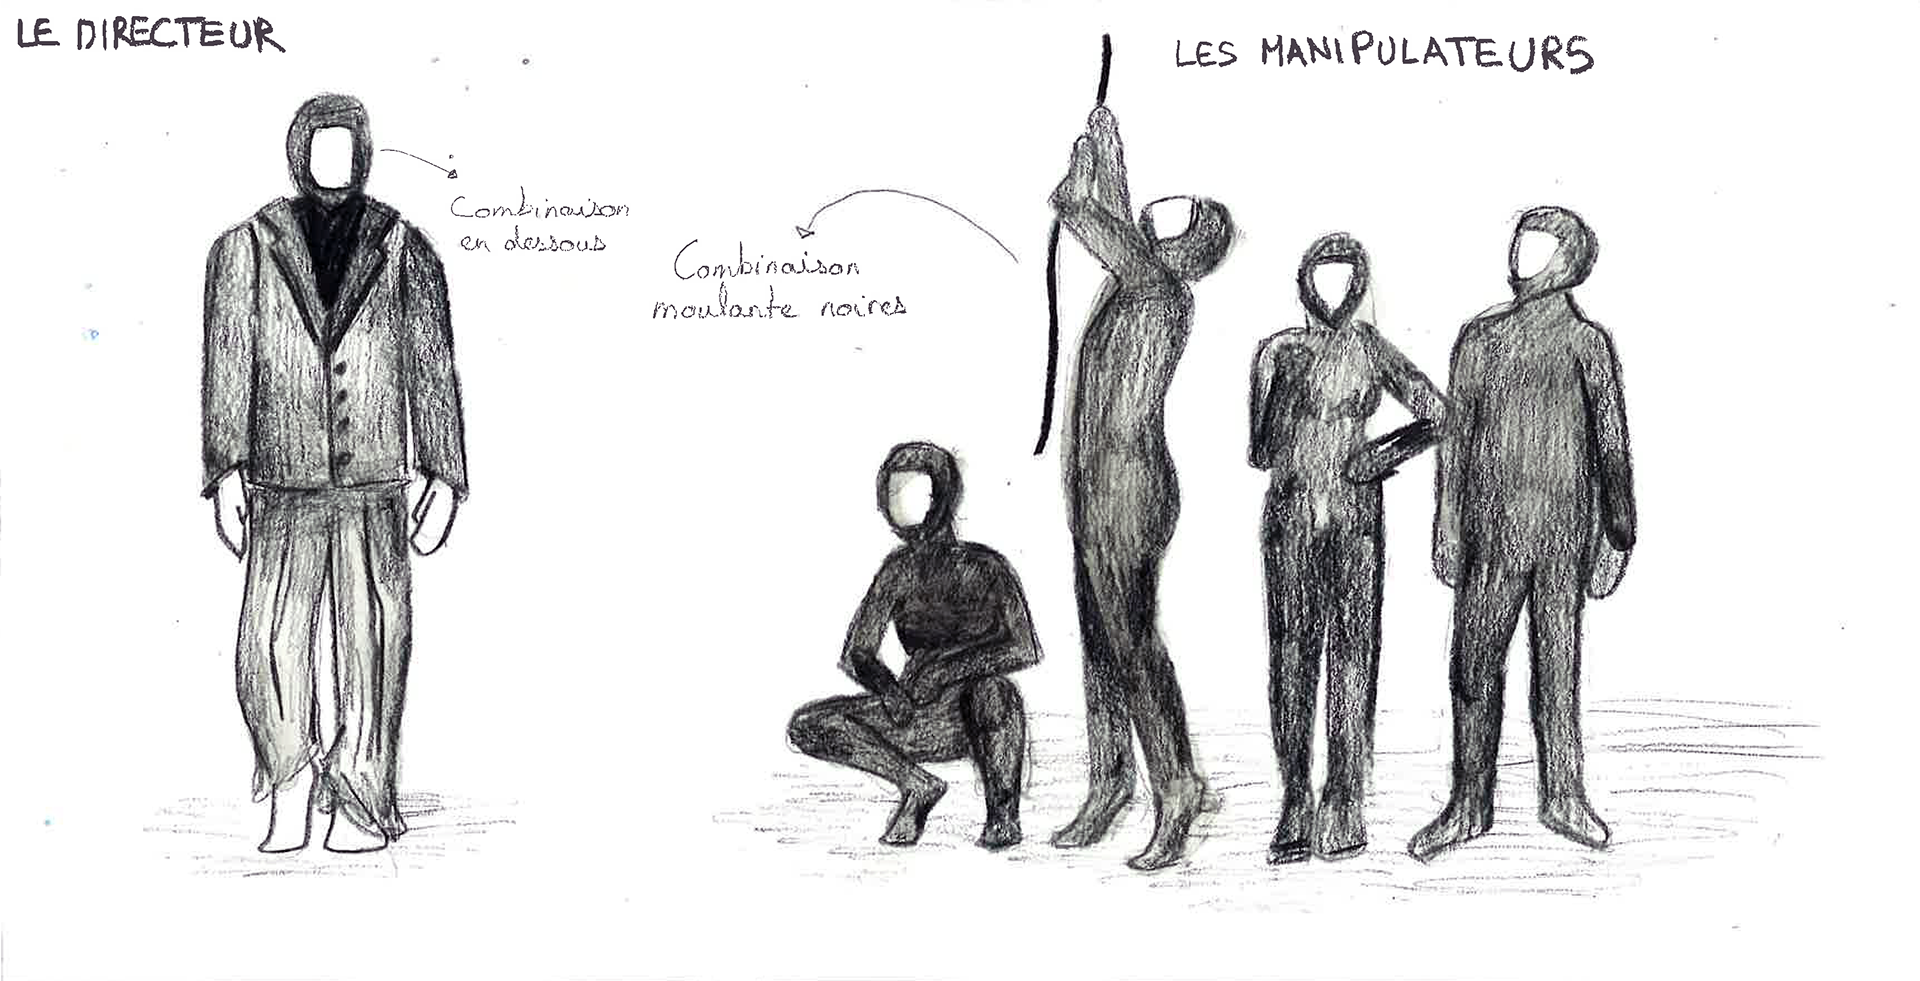 LE DIRECTEUR
Combinaison
en dessous
LES MANIPULATEURS
Combinaison
moulante noires